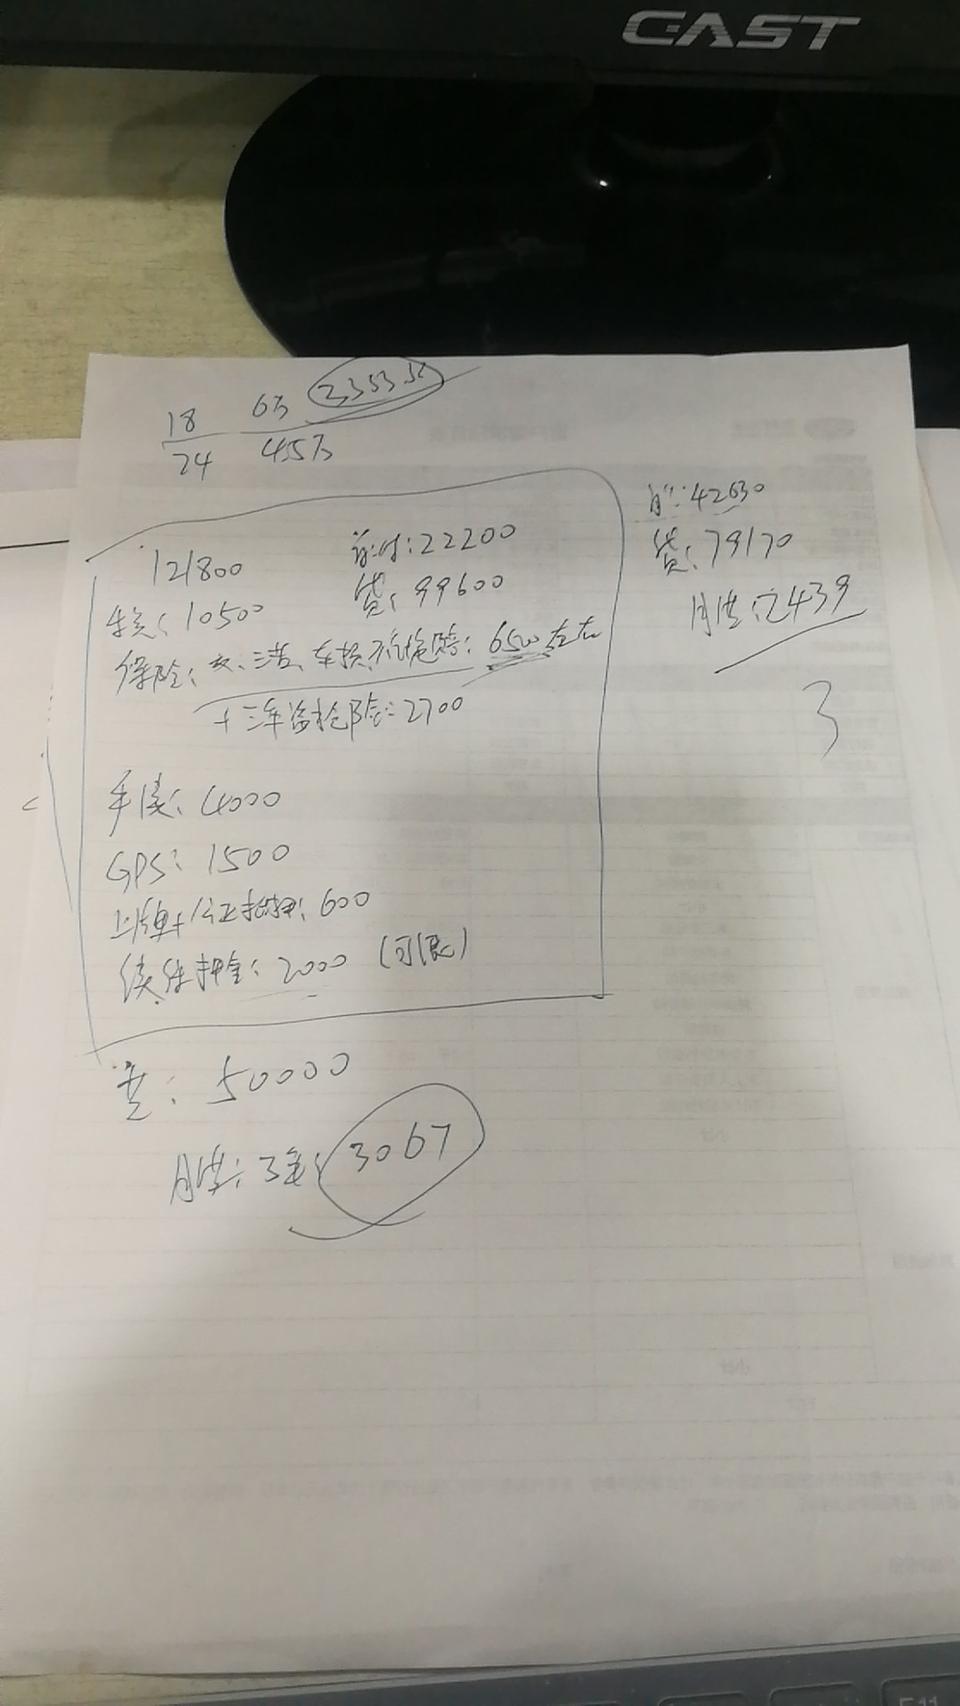 CAST
18 6万
24 4.5万
121800 首付:22200
贷:99600
保险:交、三者、车损、不计免赔:6500左右
+三年盗抢险:2700
手续:4000
GPS:1500
上牌+公证抵押:600
续保押金:2000 (可退)
50000
月供:3年:3067
首:42630
贷:79170
月供:2439
3
F11